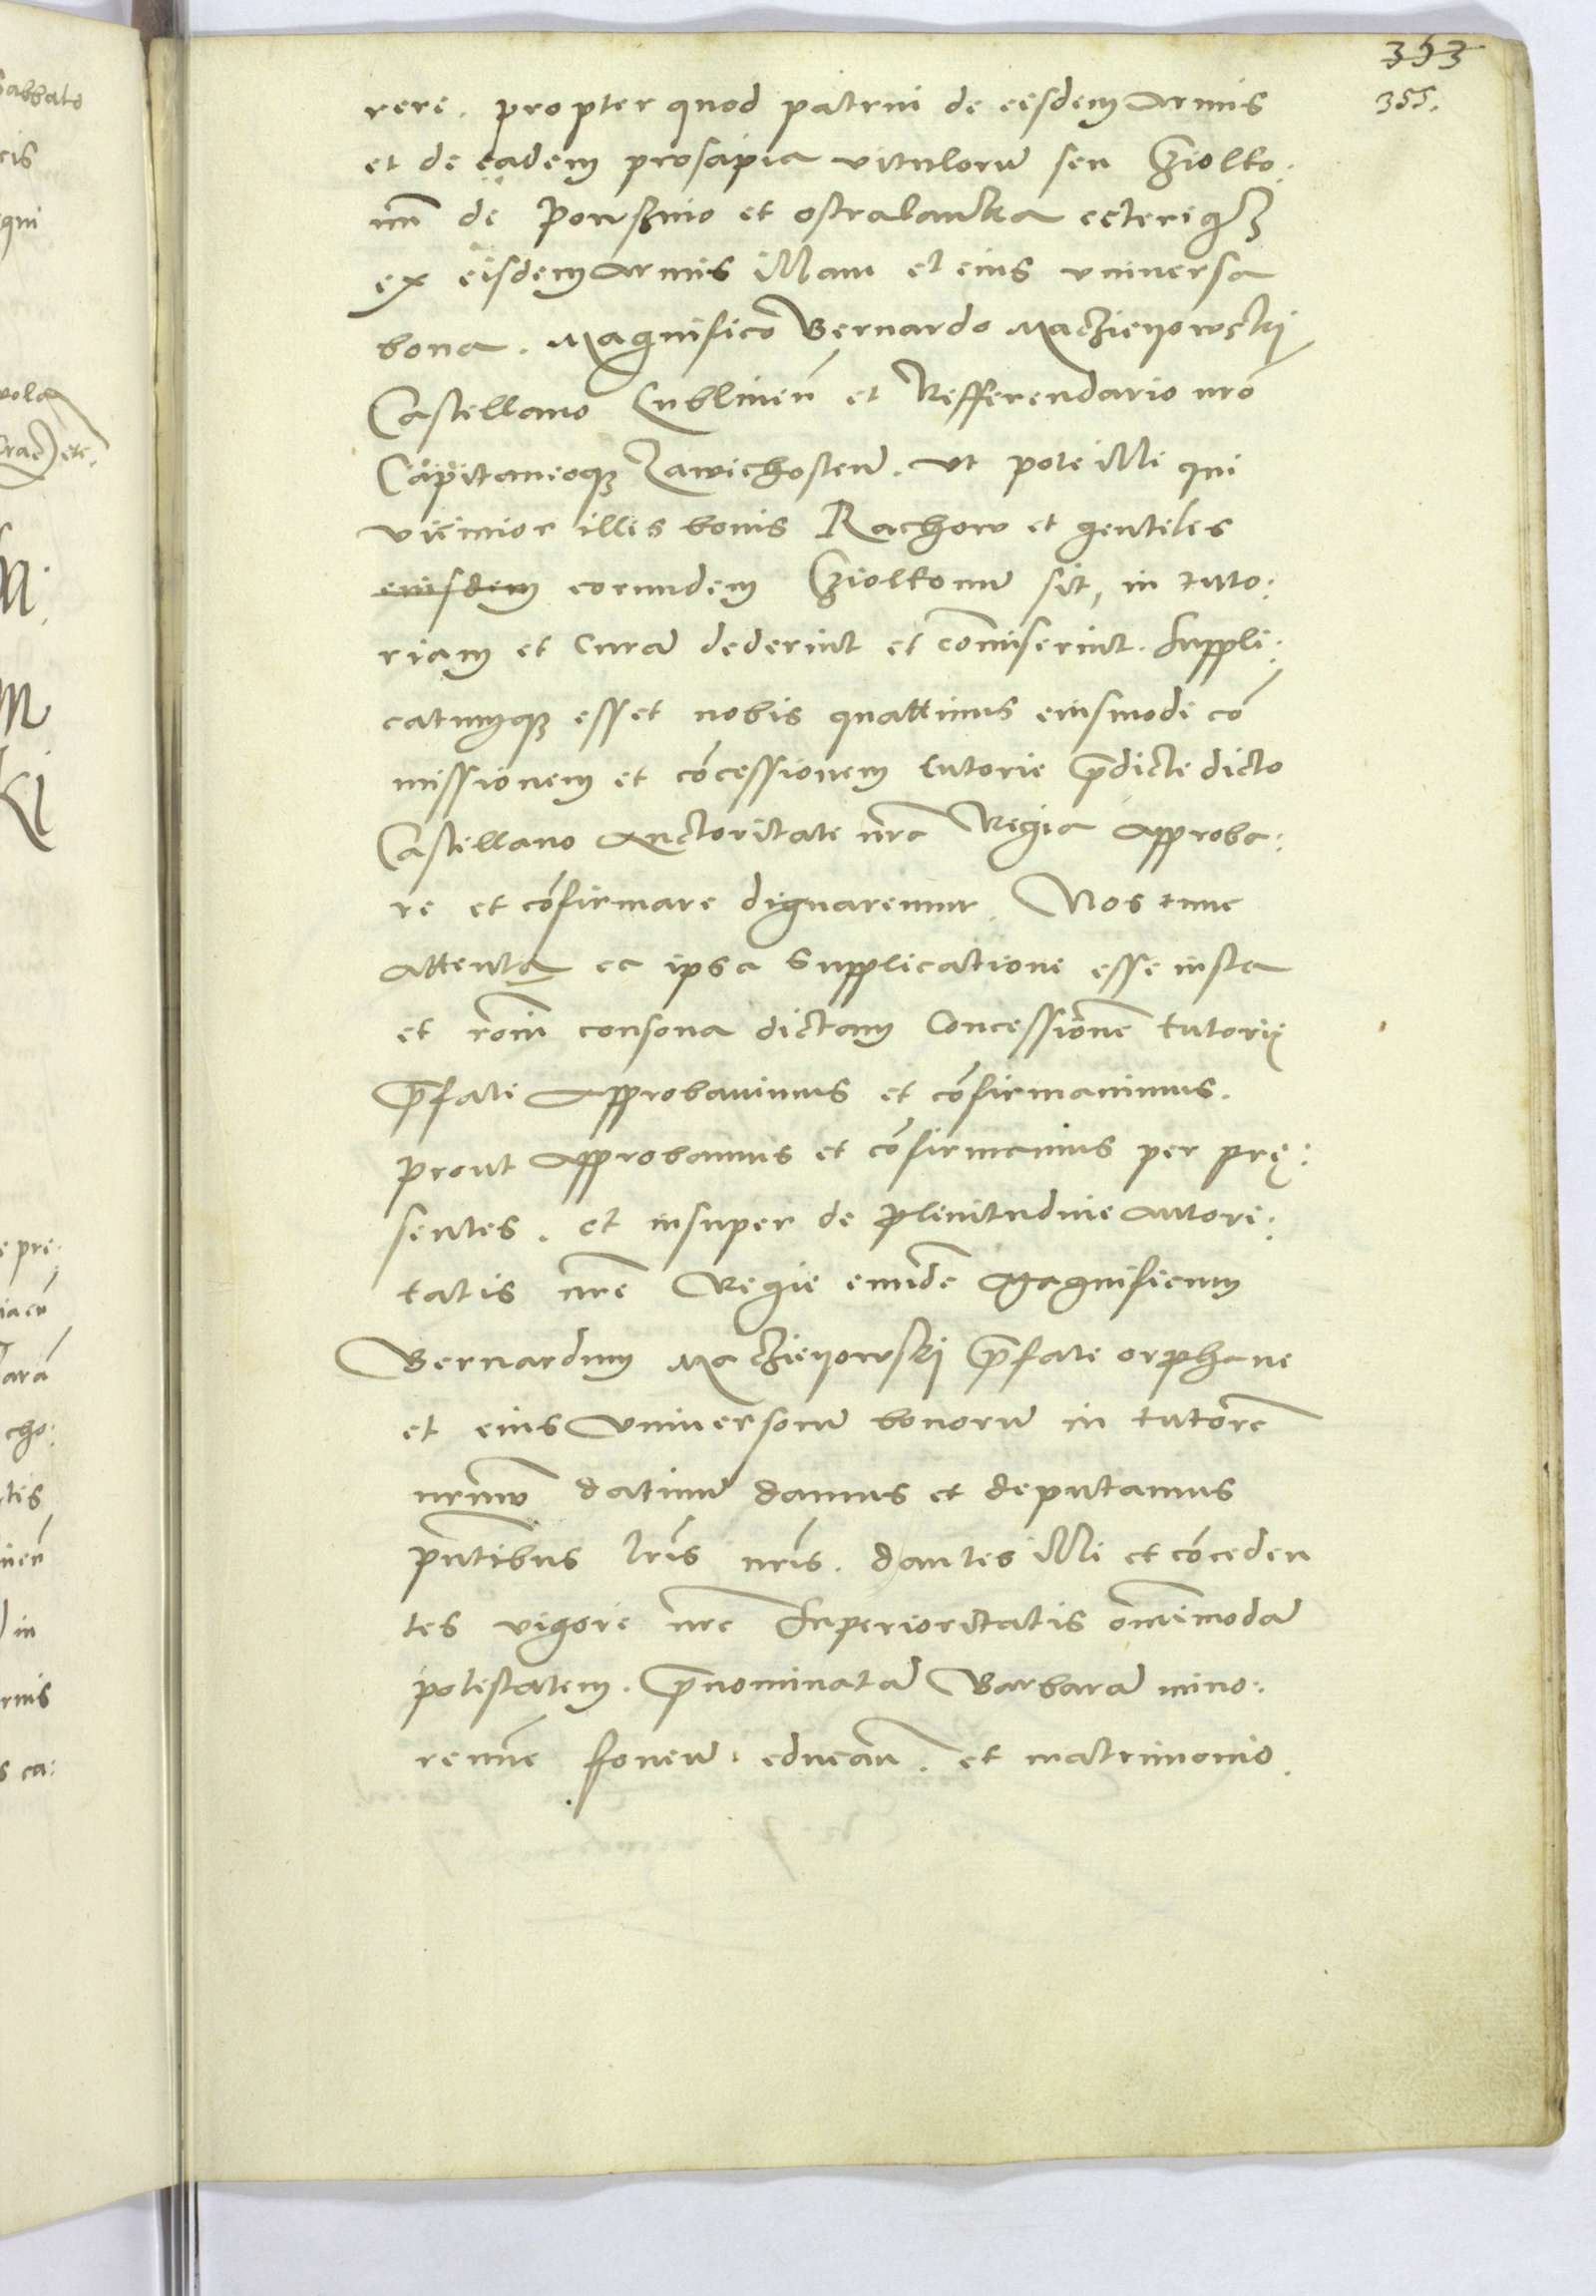 353
355.
rere. propter quod patrui de eisdem Armis
et de eadem prosapia vitulorū seu Cziolko:
nū de Powszyno et ostralanka ceteriq3
ex eisdem Armis illam et eius vniuersa
bona. Magnifico Bernardo Maczieyowskj
Castellano Lublineñ et Refferendario nrō
Capitaneoq3 Zawichosteñ. vt pote illi qui
vicinior illis bonis Rachow et gentiles
eiusdem eorundem Cziolkonū sit, in tuto:
riam et Curā dederint et cōmiserint. Suppli:
catumq3 esset nobis quattinus eiusmodi cō
missionem et cōcessionem tutorie p̄dicte dicto
Castellano Auctoritate nrā Regia Approba:
re et cōfirmare dignaremur. Nos tunc
Attenta ea ipsa Supplicatione esse iusta
et rōni consona dictam Concessionē tutorij
p̄fate Approbauimus et cōfirmauimus.
prout Approbamus et cōfirmamus per pre:
sentes. et insuper de plenitudine Autori:
tatis nrē Regie eundē Magnificum
Bernardum Maczieyowskj p̄fate orphane
et eius Vniuersorū bonorū in tutorē
nrūm datiuū damus et deputamus
pñtibus lrīs nrīs. dantes illi et cōceden
tes vigore nrē Superioritatis omīmodā
potestatem. p̄nominatā Barbarā mino:
rennē foueñ. educañ. et matrimonio